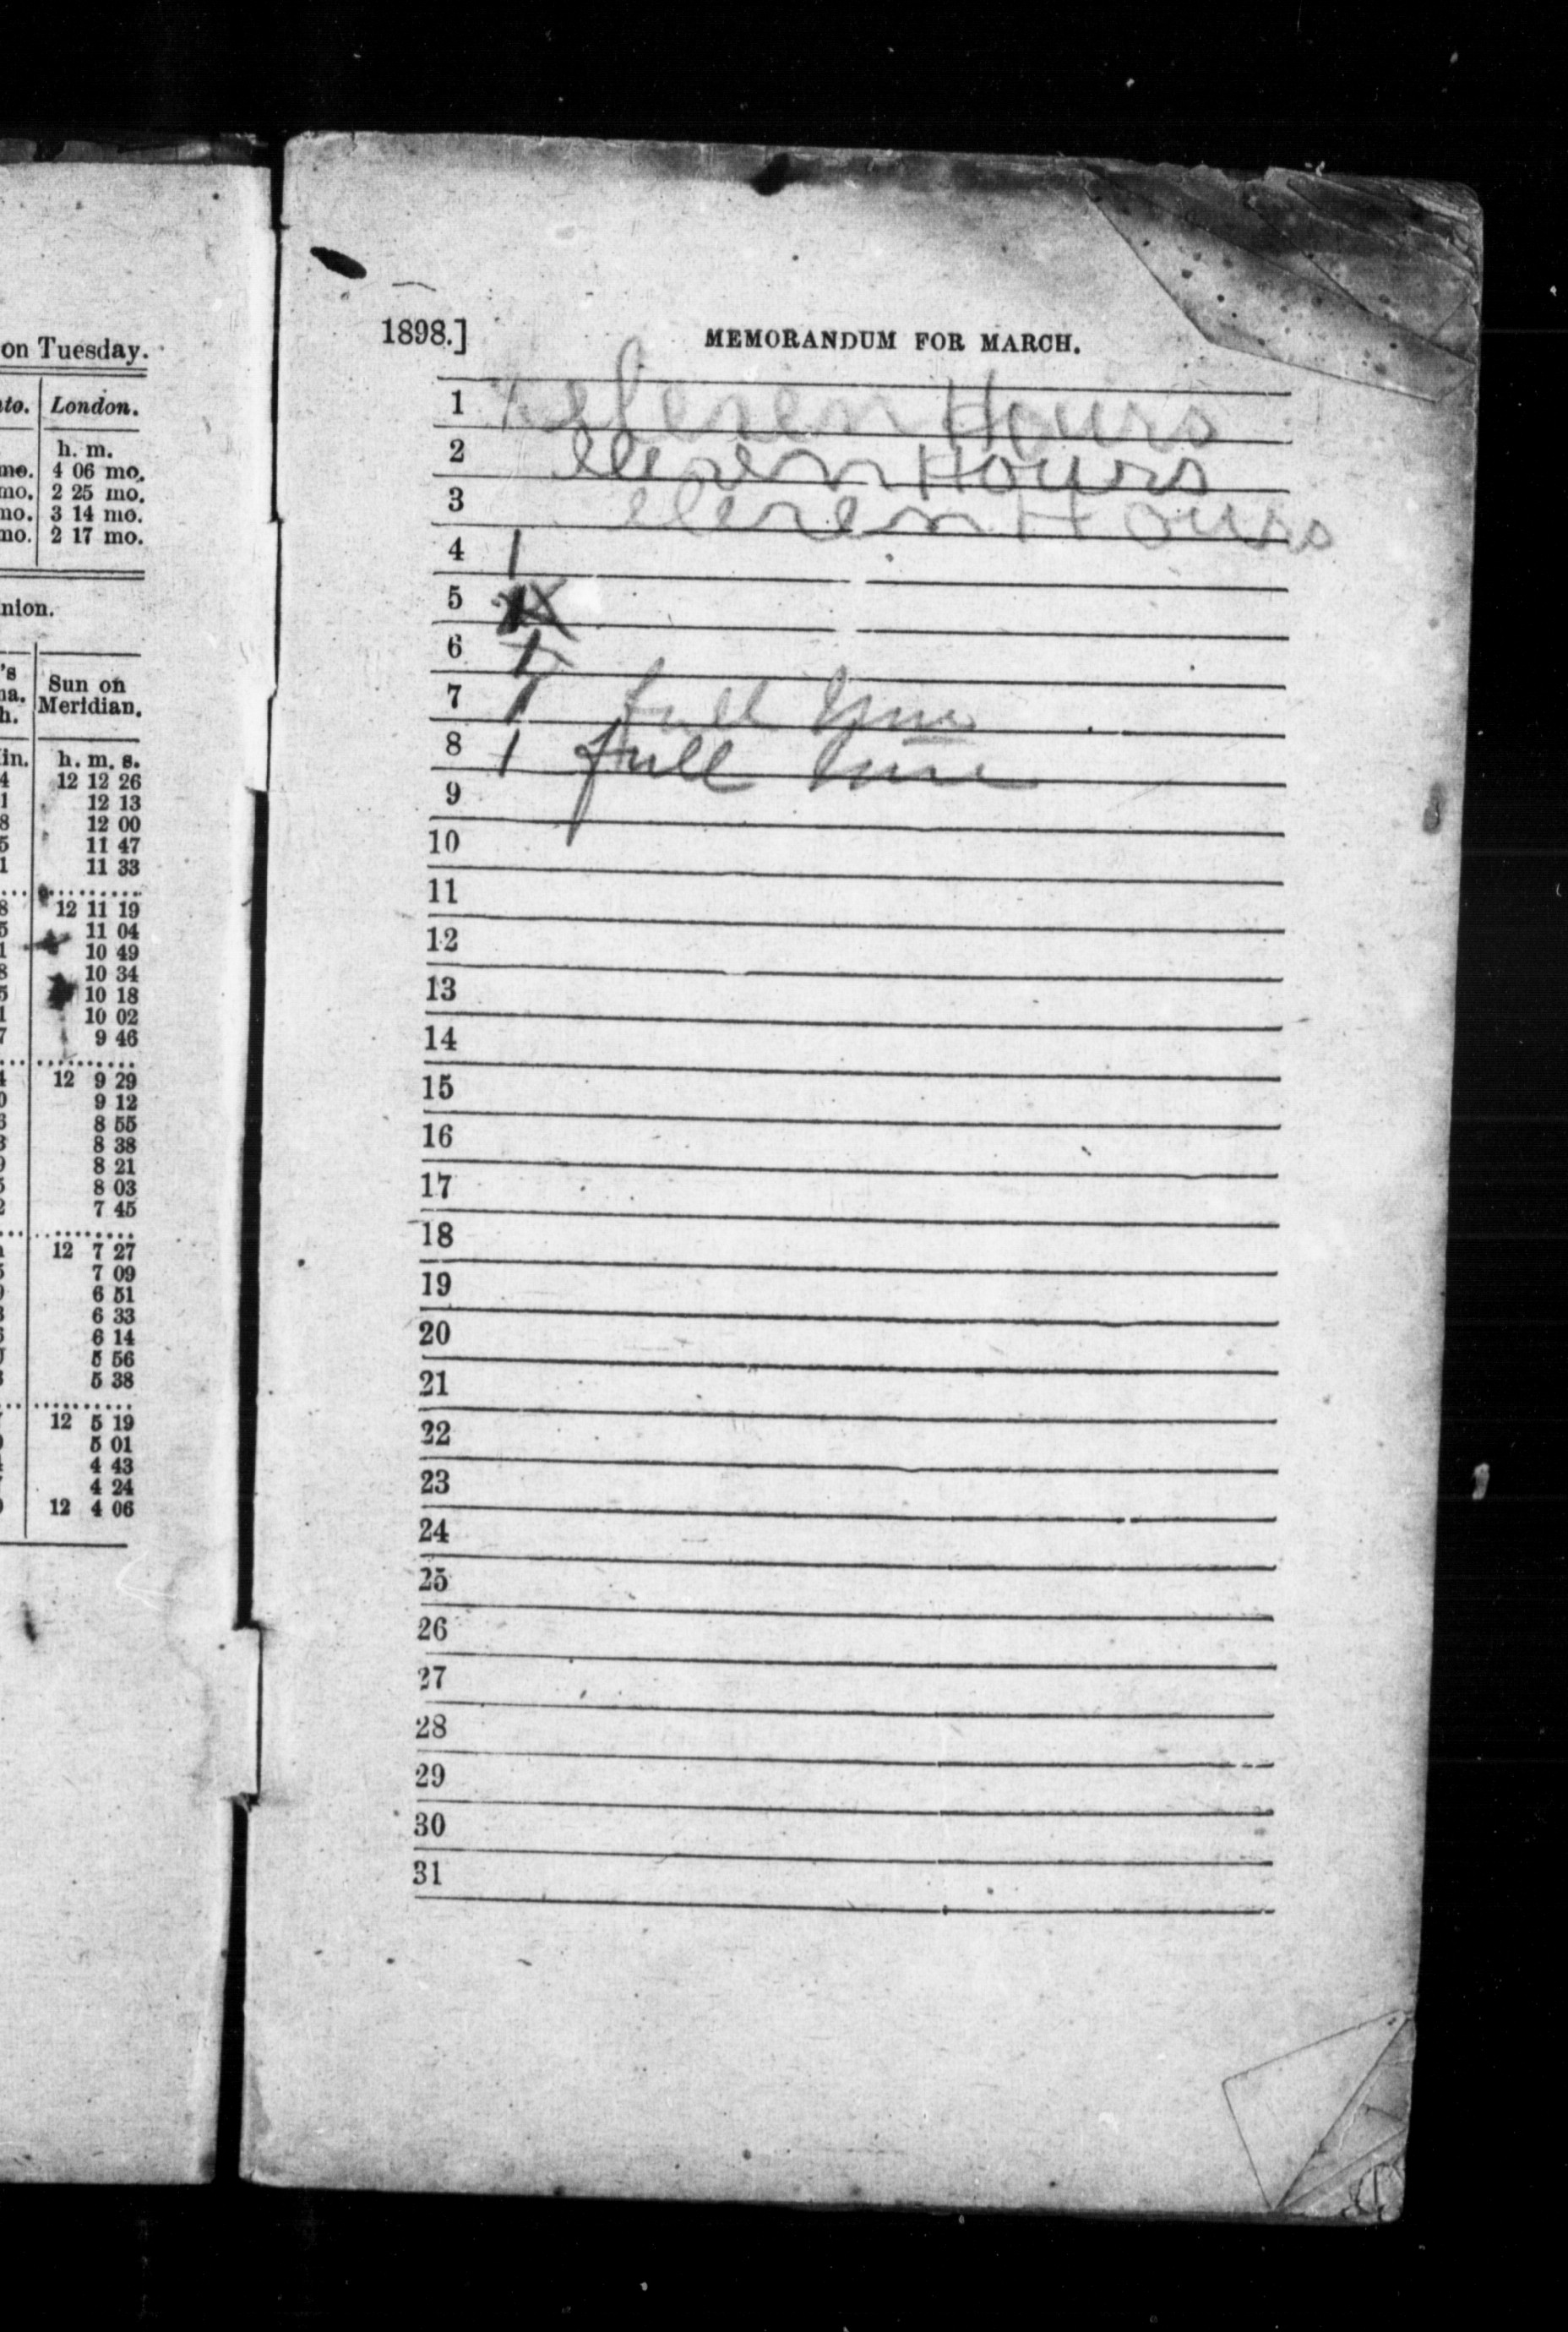 on Tuesday.
to. London.
h. m.
mo. 4 06 mo.
mo. 2 25 mo.
mo. 3 14 mo.
mo. 2 17 mo.
nion.
's
na.
h.
Sun on
Meridian.
in. h. m. s.
4 12 12 26
1 12 13
8 12 00
5 11 47
1 11 33
8 12 11 19
5 11 04
1 10 49
8 10 34
5 10 18
1 10 02
7 9 46
4 12 9 29
0 9 12
6 8 55
3 8 38
9 8 21
5 8 03
2 7 45
12 7 27
5 7 09
0 6 51
3 6 33
6 6 14
5 56
3 5 38
12 5 19
5 01
4 43
4 24
12 4 06
1898.] MEMORANDUM FOR MARCH.
1 eleven Hours
2 eleven Hours
3 eleven Hours
4 1
5
6 1
7 1 full time
8 1 full time
9
10
11
12
13
14
15
16
17
18
19
20
21
22
23
24
25
26
27
28
29
30
31